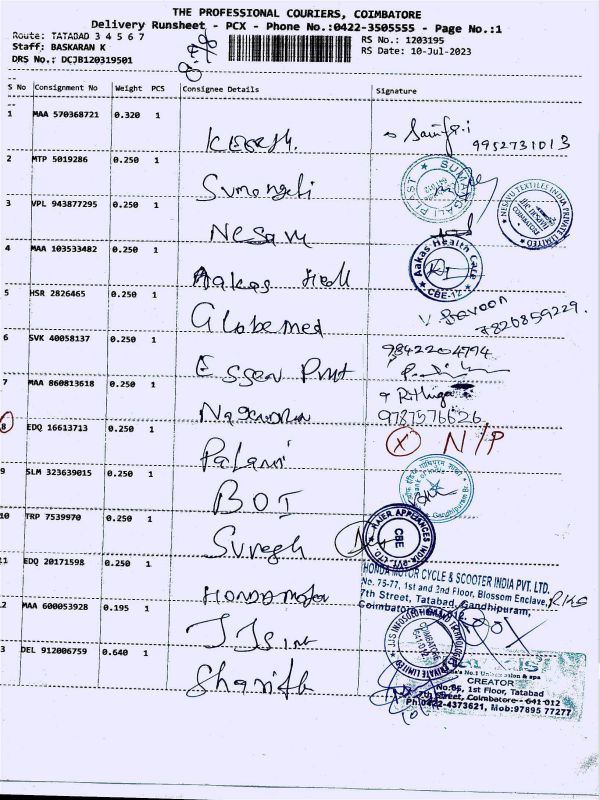 THE PROFESSIONAL COURIERS, COIMBATORE
Delivery Runsheet - PCX - Phone No.:0422-3505555 - Page No.:1
Route: TATABAD 3 4 5 6 7
RS No.: 1203195
Staff: BASKARAN K
RS Date: 10-Jul-2023
DRS No.: DCJB120319501
S No Consignment No Weight PCS Consignee Details Signature
1 MAA 570368721 0.320 1
9952731013
2 MTP 5019286 0.250 1
Sumangali
SUMANGALI PLAST
3 VPL 943877295 0.250 1
Nesavu
NESAVU TEXTILES INDIA PRIVATE LIMITED
COIMBATORE
4 MAA 103533482 0.250 1
Aakas Heal
Aakas Health Care
CBE-12
5 HSR 2826465 0.250 1
Globemed
7820859229.
6 SVK 40058137 0.250 1
Essen Print
9842204794
7 MAA 860813618 0.250 1
Rithiga
9787576626
8 EDQ 16613713 0.250 1
Palani
X N/P
9 SLM 323639015 0.250 1
BOI
Gandhipuram Br
10 TRP 7539970 0.250 1
Suresh
CBE
11 EDQ 20171598 0.250 1
Honda Motor
HONDA MOTOR CYCLE & SCOOTER INDIA PVT. LTD.
No. 75-77, 1st and 2nd Floor, Blossom Enclave,
7th Street, Tatabad, Gandhipuram,
Coimbatore - 641 012.
12 MAA 600053928 0.195 1
JJS
COIMBATORE
641 012
13 DEL 912006759 0.640 1
CREATOR
No:66, 1st Floor, Tatabad
7th Street, Coimbatore - 641 012
Ph:0422-4373621, Mob:97895 77277